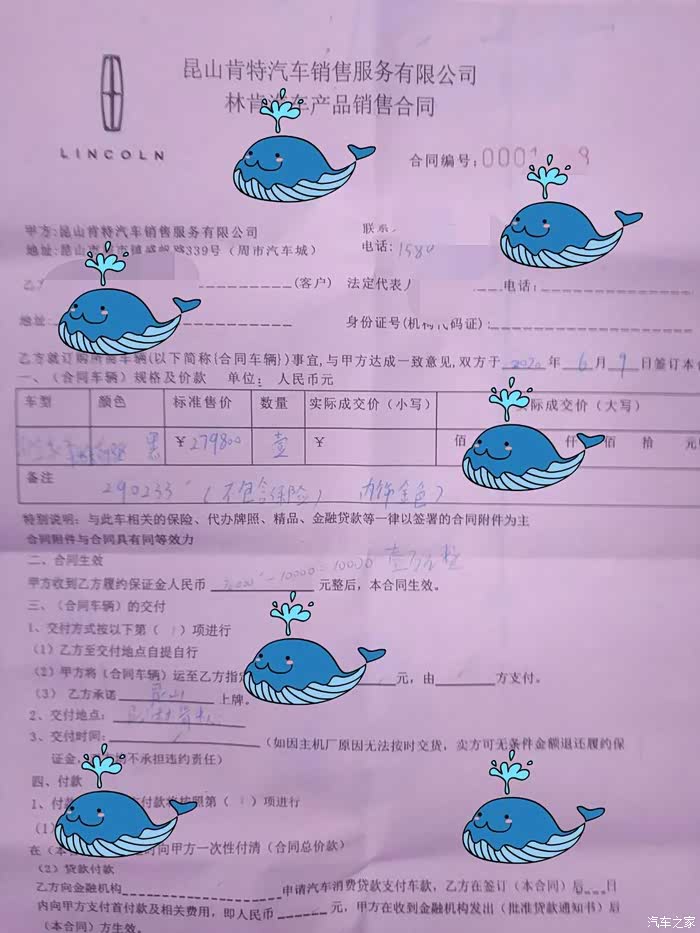 昆山肯特汽车销售服务有限公司
林肯汽车产品销售合同
LINCOLN
合同编号:0001 9
甲方:昆山肯特汽车销售服务有限公司
联系
地址:昆山市 市镇 路339号（周市汽车城）
电话: 1580
乙
(客户) 法定代表人
电话:
地址
身份证号(机构代码证):
乙方就订购 车辆(以下简称(合同车辆))事宜,与甲方达成一致意见,双方于 2020 年 6 月 9 日签订本
一、（合同车辆）规格及价款 单位: 人民币元
车型 颜色 标准售价 数量 实际成交价（小写） 实际成交价（大写）
黑 ￥279800 壹 ￥ 佰 仟 佰 拾 元
备注
290233 （不包含保险） 内饰金色）
特别说明: 与此车相关的保险、代办牌照、精品、金融贷款等一律以签署的合同附件为主
合同附件与合同具有同等效力
二、合同生效
甲方收到乙方履约保证金人民币 -10000=10000 壹万元整 元整后，本合同生效。
三、（合同车辆）的交付
1、交付方式按以下第（ ）项进行
（1）乙方至交付地点自提自行
（2）甲方将（合同车辆）运至乙方指定 元，由 方支付。
（3） 乙方承诺 昆山 上牌。
2、交付地点:
3、交付时间: （如因主机厂原因无法按时交货，卖方可无条件全额退还履约保
证金， 不承担违约责任）
四、付款
1、付款 付款将按照第（ ）项进行
（1）
在（本 时向甲方一次性付清（合同总价款）
（2）贷款付款
乙方向金融机构 申请汽车消费贷款支付车款，乙方在签订（本合同）后 日
内向甲方支付首付款及相关费用，即人民币 元，甲方在收到金融机构发出（批准贷款通知书）后
（本合同）方生效。
汽车之家